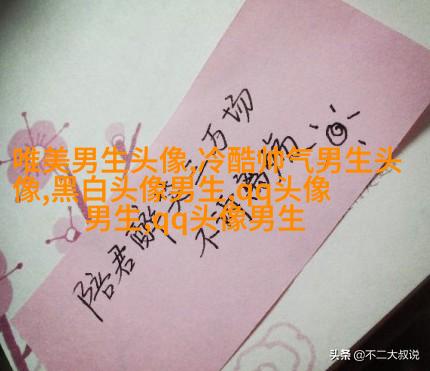 唯美男生头像,冷酷帅气男生头
像,黑白头像男生,qq头像
男生,qq头像男生
陪君醉笑三万场
不诉离
头条 @不二大叔说